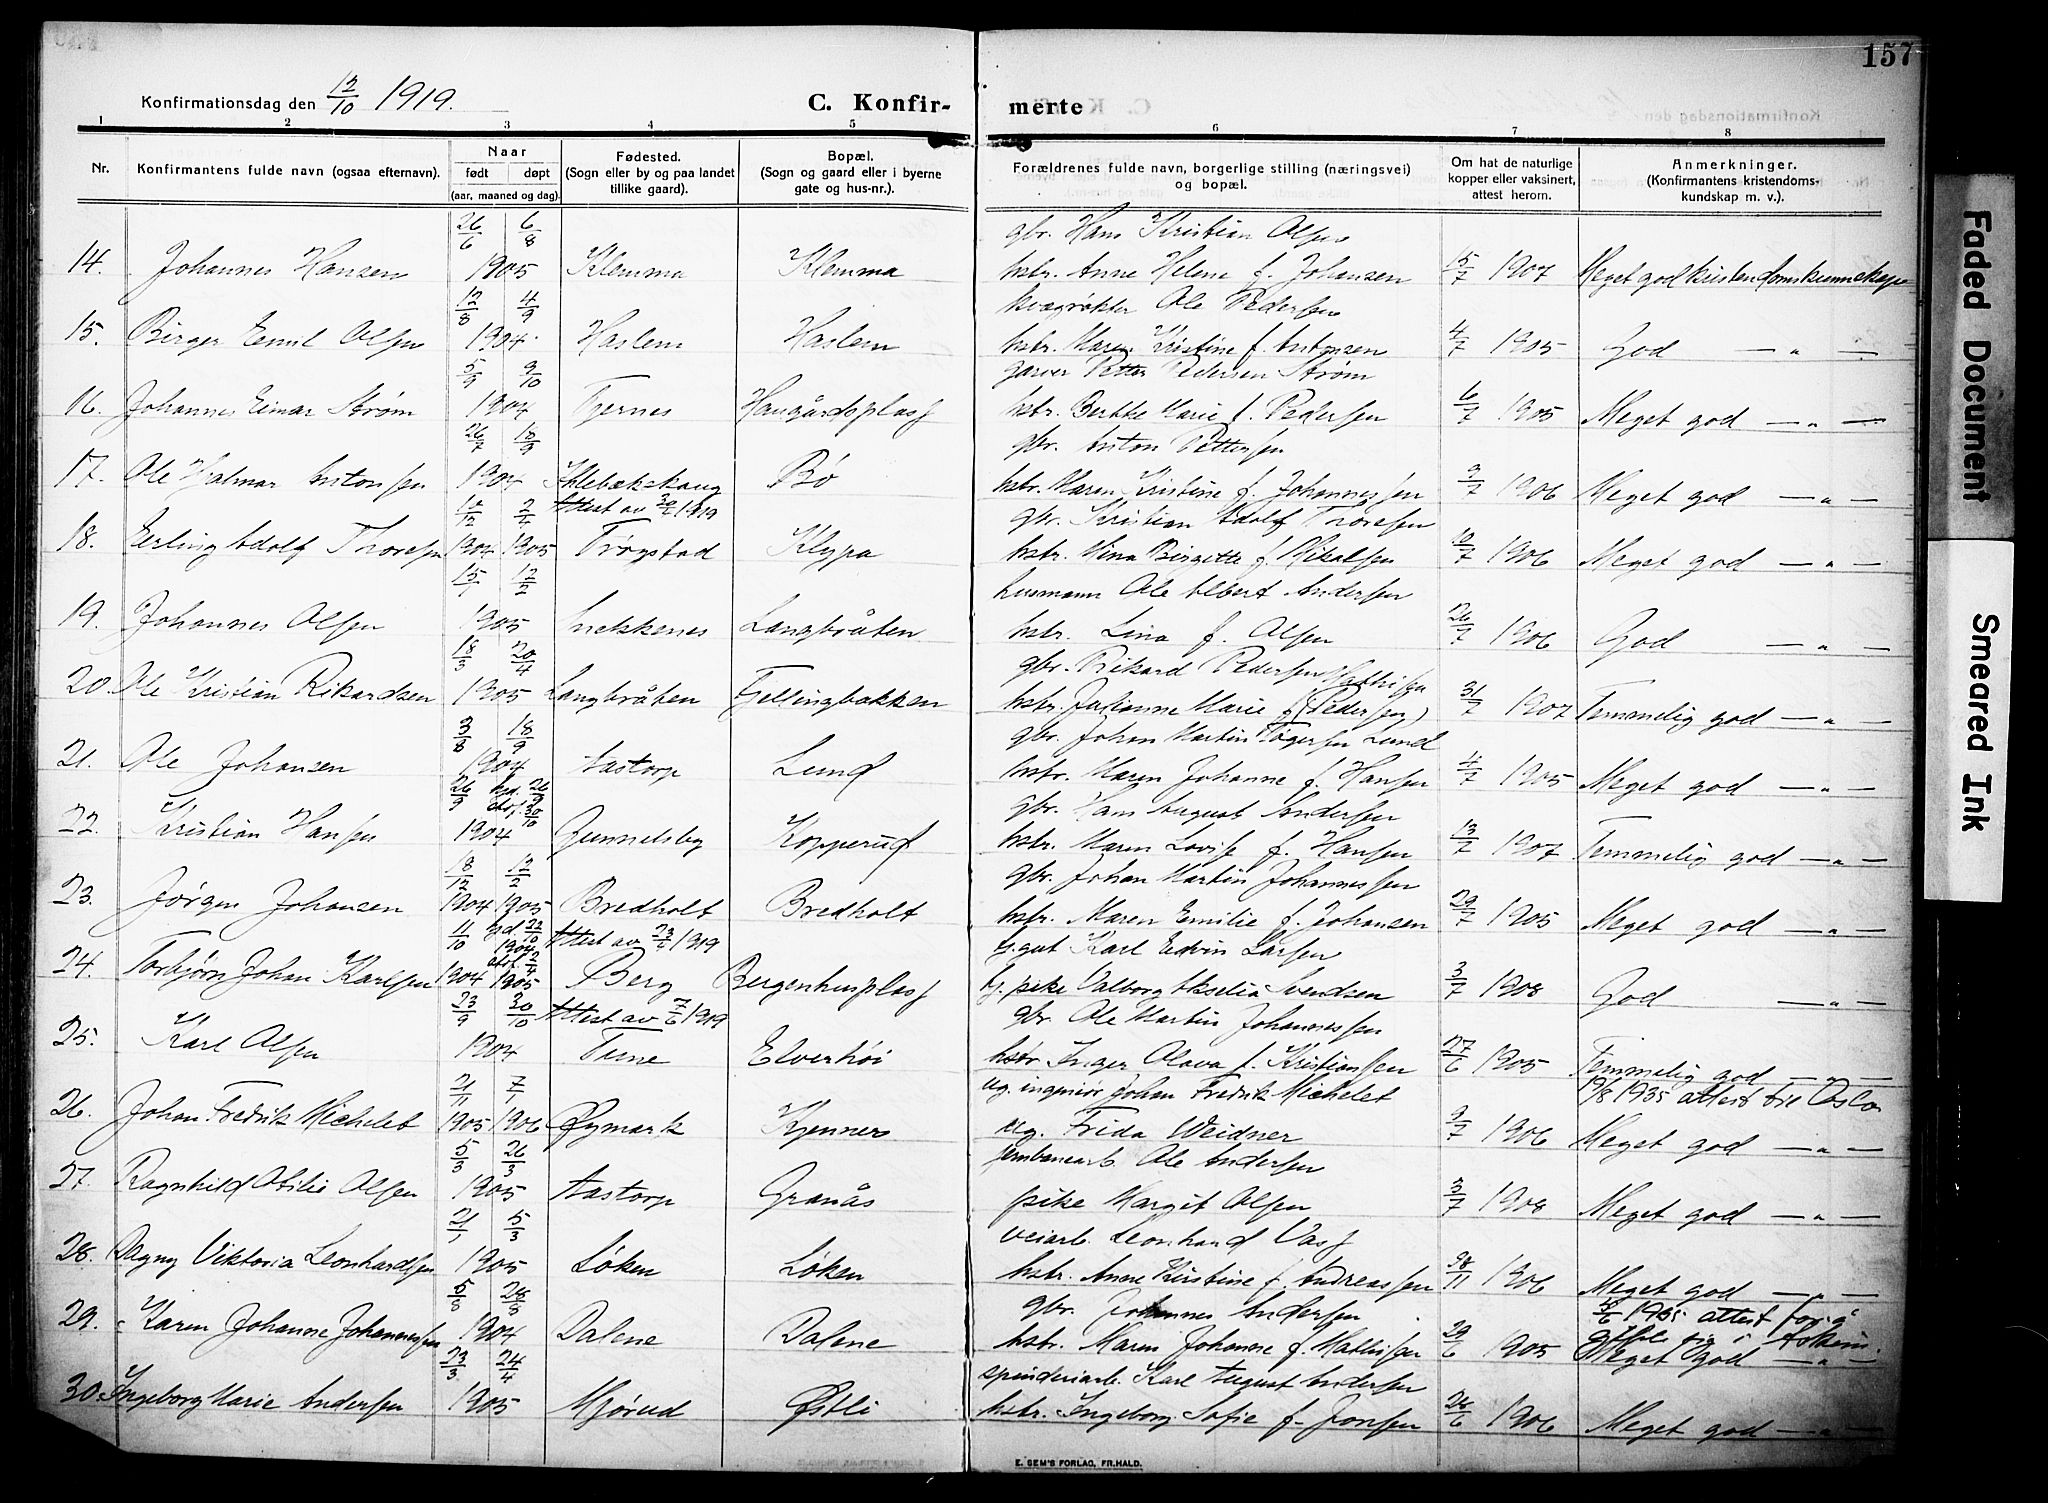 157
Konfirmationsdag den 12/10 1919.
C. Konfir-
merte
1 2 3 4 5 6 7 8
Nr.
Konfirmantens fulde navn (ogsaa efternavn).
Naar
født døpt
(aar, maaned og dag)
Fødested.
(Sogn eller by og paa landet
tillike gaard).
Bopæl.
(Sogn og gaard eller i byerne
gate og hus-nr.).
Forældrenes fulde navn, borgerlige stilling (næringsvei)
og bopæl.
Om hat de naturlige
kopper eller vaksinert,
attest herom.
Anmerkninger.
(Konfirmantens kristendoms-
kundskap m. v.).
26/6 6/8 gbr. Hans Kristian Olsen
14. Johannes Hansen 1905 Klemma Klemma hstr. Anne Helene f. Johansen 15/7 1907 Meget god kristendomskunnskap
12/8 4/9 kvægrøkter Ole Pedersen
15. Birger Emil Olsen 1904 Haslem Haslem hstr. Maren Kristine f. Antonsen 4/7 1905 God — „ —
5/9 9/10 garver Petter Pedersen Strøm
16. Johannes Einar Strøm 1904 Tjernes Haugårdsplass hstr. Berthe Marie f. Pedersen 6/7 1905 Meget god — „ —
26/7 18/9 gbr. Anton Pettersen
17. Ole Hjalmar Antonsen 1904 Bø hstr. Maren Kristine f. Johannessen 9/7 1906 Meget god — „ —
12/12 2/4 Attest av 1919 gbr. Kristian Adolf Thoresen
18. Erling Adolf Thoresen 1904 1905 Trøgstad Klypa hstr. Mina Birgitte f. Mikalsen 10/7 1906 Meget god — „ —
15/1 12/2 husmann Ole Albert Andersen
19. Johannes Olsen 1905 Snekkenes Langbråten hstr. Lina f. Olsen 26/7 1906 God — „ —
18/3 20/4 gbr. Rikard Pedersen Mathisen
20. Ole Kristian Rikardsen 1905 Langbråten Fjellingbakken hstr. Julianne Marie f. (Pedersen) 31/7 1907 Temmelig god — „ —
3/8 18/9 gbr. Johan Martin Tøgersen Lund
21. Ole Johansen 1904 Aastorp Lund hstr. Maren Johanne f. Hansen 4/7 1905 Meget god — „ —
26/9 hjd. 26/9 gbr. Hans August Andersen
22. Kristian Hansen 1904 30/10 Gunnelsby Kopperud hstr. Maren Lovise f. Hansen 13/7 1907 Temmelig god — „ —
18/12 12/2 gbr. Johan Martin Johannessen
23. Jørgen Johansen 1904 1905 Bredholt Bredholt hstr. Maren Emilie f. Johansen 29/7 1905 Meget god — „ —
11/10 hjd. 22/10 1904 Attest av 23/4 1919 g.gut Karl Edvin Larsen
24. Torbjørn Johan Karlsen 1904 1905 Berg Bergenhusplass pike Valborg Akselia Svendsen 3/7 1908 God — „ —
23/9 30/10 Attest av 7/6 1919 gbr. Ole Martin Johannessen
25. Karl Olsen 1904 Tune Elverhøi hstr. Inger Olava f. Kristiansen 27/6 1905 Temmelig god — „ —
21/11 7/1 ug. ingeniør Johan Fredrik Michelet 19/8 1935 attest til Oslo
26. Johan Fredrik Michelet 1905 1906 Øymark Kjennes ug. Frida Weidner 9/7 1906 Meget god — „ —
5/3 26/3 jernbanearb. Ole Andersen
27. Ragnhild Otilie Olsen 1905 Aastorp Granås pike Margit Olsen 3/7 1908 Meget god — „ —
21/1 5/3 veiarb. Leonhard Vass
28. Dagny Viktoria Leonhardsen 1905 Løken Løken hstr. Anne Kirstine f. Andreassen 1906 Meget god — „ —
5/8 28/8 gbr. Johannes Andersen 1935 attest for å
29. Karen Johanne Johannessen 1904 Dalene Dalene hstr. Maren Johanne f. Mathisen 29/6 1905 Meget god — „ —
23/3 24/4 spinderiarb. Karl August Andersen
30. Ingeborg Marie Andersen 1905 Mjørud Østli hstr. Ingeborg Sofie f. Jonsen 28/6 1906 Meget god — „ —
E. SEM'S FORLAG, FR.HALD.
Faded Document
Smeared Ink